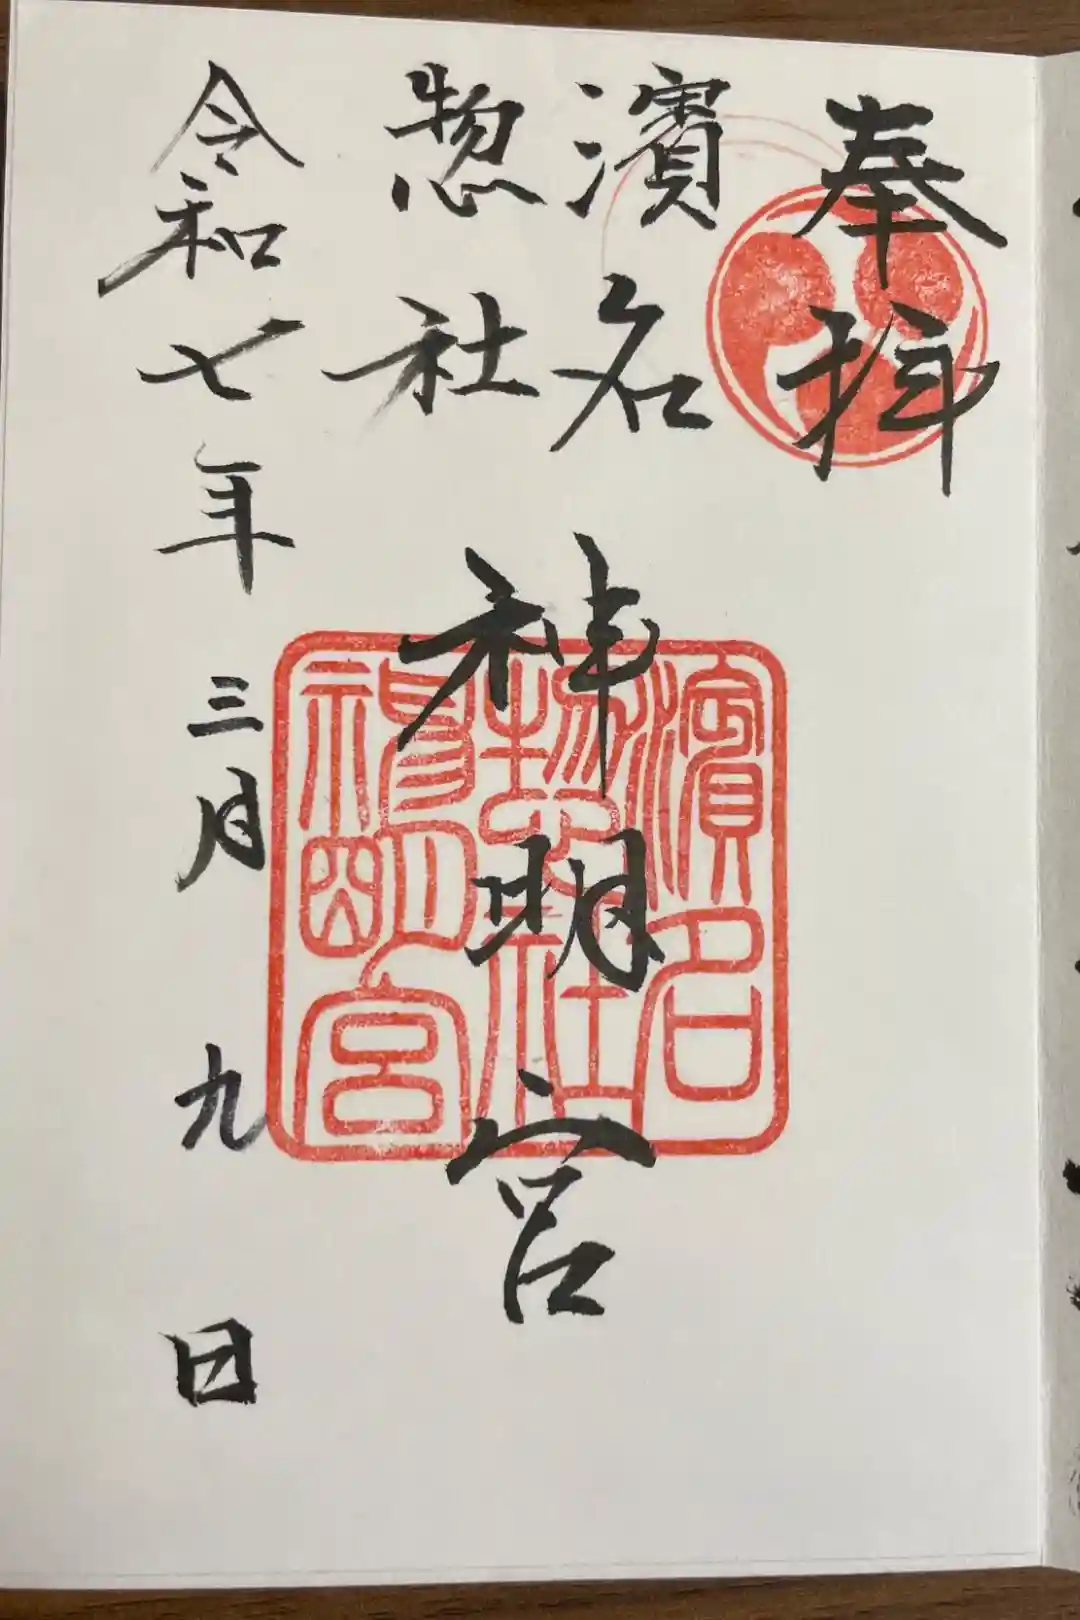 奉拝
濱名
惣社
神明宮
令和七年三月九日
濱名
惣社
神明宮